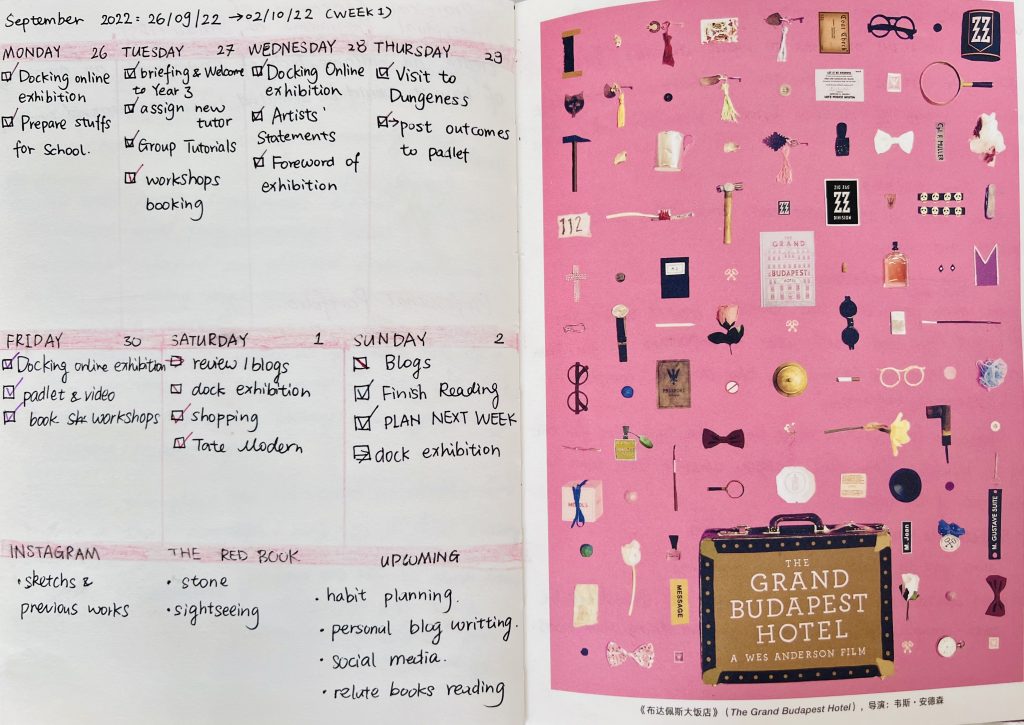 September 2022: 26/09/22 → 02/10/22 (WEEK 1)
MONDAY 26
Docking online
exhibition
Prepare stuffs
for School.
TUESDAY 27
briefing & Welcome
to Year 3
assign new
tutor
Group Tutorials
workshops
booking
WEDNESDAY 28
Docking Online
exhibition
Artists'
Statements
Foreword of
exhibition
THURSDAY 29
Visit to
Dungeness
post outcomes
to padlet
FRIDAY 30
Docking online exhibition
padlet & video
book workshops
SATURDAY 1
review / blogs
dock exhibition
shopping
Tate Modern
SUNDAY 2
Blogs
Finish Reading
PLAN NEXT WEEK
dock exhibition
INSTAGRAM
• sketchs &
previous works
THE RED BOOK
• stone
• sightseeing
UPCOMING
• habit planning.
• personal blog writting.
• social media.
• relute books reading
Coat Check
ZZ
112
ZIG ZAG
ZZ
DIVISION
THE
GRAND
BUDAPEST
HOTEL
PASSPORT
MENDL'S
M. Jean
M. GUSTAVE SUITE
MESSAGE
THE
GRAND
BUDAPEST
HOTEL
A WES ANDERSON FILM
《布达佩斯大饭店》(The Grand Budapest Hotel)，导演：韦斯·安德森